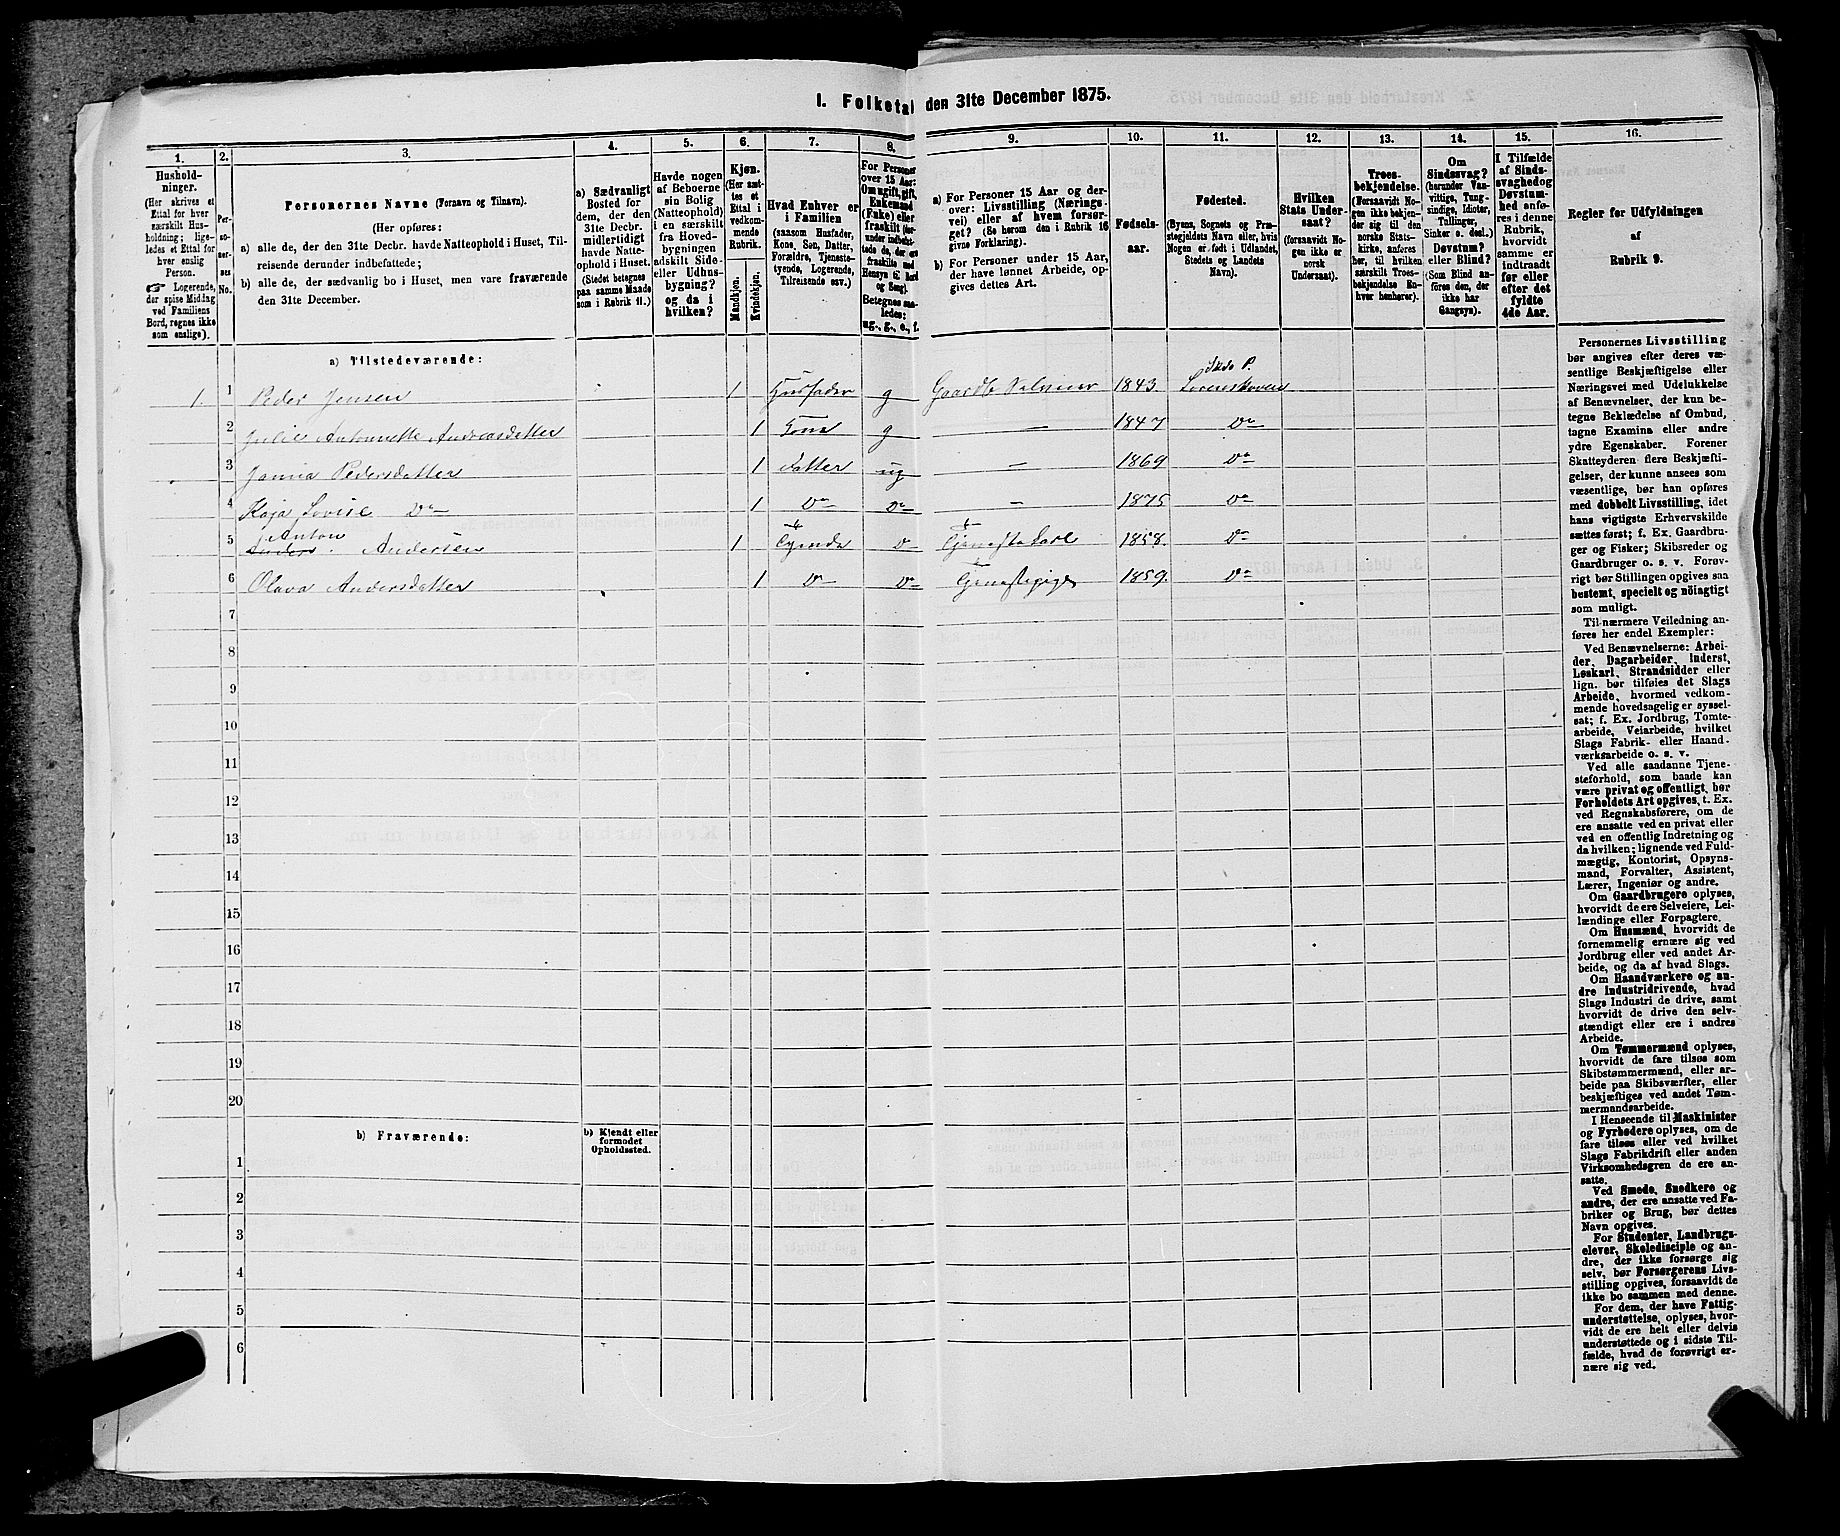 1. Folketal den 31te December 1875.
1.
2.
3.
4.
5.
6.
7.
8.
9.
10.
11.
12.
13.
14.
15.
16.
Hushold-
ninger.
(Her skrives et
Ettal for hver
særskilt Hus-
holdning; lige-
ledes et Ettal for
hver enslig
Person.
☞ Logerende,
der spise Middag
ved Familiens
Bord, regnes ikke
som enslige).
Per-
so-
ner-
nes
No.
Personernes Navne (Fornavn og Tilnavn).
(Her opføres:
a) alle de, der den 31te Decbr. havde Natteophold i Huset, Til-
reisende derunder indbefattede;
b) alle de, der sædvanlig bo i Huset, men vare fraværende
den 31te December.
a) Sædvanligt
Bosted for
dem, der den
31te Decbr.
midlertidigt
havde Natte-
ophold i Huset.
(Stedet betegnes
paa samme Maade
som i Rubrik 11.)
Havde nogen
af Beboerne
sin Bolig
(Natteophold)
i en særskilt
fra Hoved-
bygningen
adskilt Side-
eller Udhus-
bygning?
og da i
hvilken?
Kjøn.
(Her sæt-
tes et
Ettal i
vedkom-
mende
Rubrik.
Mandkjøn.
Kvindekjøn.
Hvad Enhver er
i Familien
(saasom Husfader,
Kone, Søn, Datter,
Forældre, Tjeneste-
tyende, Logerende,
Tilreisende osv.)
For Personer
over 15 Aar:
Om ugift, gift,
Enkemand
(Enke) eller
fraskilt
Hensyn til Bord
og Seng).
Betegnes saa-
ledes:
ug., g., e., f.
a) For Personer 15 Aar og der-
over: Livsstilling (Nærings-
vei) eller af hvem forsør-
get? (Se herom den i Rubrik 16
givne Forklaring).
b) For Personer under 15 Aar,
der have lønnet Arbeide, op-
gives dettes Art.
Fødsels-
aar.
Fødested.
(Byens, Sognets og Præ-
stegjeldets Navn eller, hvis
Nogen er født i Udlandet,
Stedets og Landets
Navn).
Hvilken
Stats Under-
saat?
(forsaavidt No-
gen ikke er
norsk
Undersaat).
Troes-
bekjendelse.
(Forsaavidt No-
gen ikke bekjen-
der sig til den
norske Stats-
kirke, anføres
her, til hvilken
særskilt Troes-
bekjendelse En-
hver henhører).
Om
Sindssvag?
(herunder Van-
vittige, Tung-
sindige, Idioter,
Tullinger,
Sinker o. desl.)
Døvstum?
eller Blind?
(Som Blind an-
føres den, der
ikke har
Gangsyn).
I Tilfælde
af Sinds-
svaghed og
Døvstum-
hed anfø-
res i denne
Rubrik,
hvorvidt
samme er
indtraadt
før eller
efter det
fyldte
4de Aar.
Regler for Udfyldningen
af
Rubrik 9.
a) Tilstedeværende:
1. 1 Peder Jensen 1 Husfader g Gaardb. Selveier 1843. Skeds P. Lørenskoven
2 Julie Antonette Andreasdatter 1 Kone g — 1847 Do
3 Janna Pedersdatter 1 Datter ug — 1869 Do
4 Kaja Lovise Do 1 Do Do — 1875 Do
Anton
5 Anders Andersen 1 Tyende Do Tjenestekarl 1858. Do
6 Olava Andersdatter 1 Do Do Tjenestepige 1859. Do
7
8
9
10
11
12
13
14
15
16
17
18
19
20
b) Fraværende:
b) Kjendt eller
formodet
Opholdssted.
1
2
3
4
5
6
Personernes Livsstilling
bør angives efter deres væ-
sentlige Beskjæftigelse eller
Næringsvei med Udelukkelse
af Benævnelser, der kun be-
tegne Beklædelse af Ombud,
tagne Examina eller andre
ydre Egenskaber. Forener
Skatteyderen flere Beskjæfti-
gelser, der kunne ansees som
væsentlige, bør han opføres
med dobbelt Livsstilling, idet
hans vigtigste Erhvervskilde
sættes først; f. Ex. Gaardbru-
ger og Fisker; Skibsreder og
Gaardbruger o. s. v. Forøv-
rigt bør Stillingen opgives saa
bestemt, specielt og nöiagtigt
som muligt.
Til nærmere Veiledning an-
føres her endel Exempler:
Ved Benævnelserne: Arbei-
der, Dagarbeider, Inderst,
Løskarl, Strandsidder eller
lign. bør tilføies det Slags
Arbeide, hvormed vedkom-
mende hovedsagelig er syssel-
sat; f. Ex. Jordbrug, Tomte-
arbeide, Veiarbeide, hvilket
Slags Fabrik- eller Haand-
værksarbeide o. s. v.
Ved alle saadanne Tjene-
steforhold, som baade kan
være privat og offentligt, bør
Forholdets Art opgives, t. Ex.
ved Regnskabsførere, om de
ere ansatte ved en privat eller
ved en offentlig Indretning og
da hvilken; lignende ved Fuld-
mægtig, Kontorist, Opsyns-
mand, Forvalter, Assistent,
Lærer, Ingeniør og andre.
Om Gaardbrugere oplyses,
hvorvidt de ere Selveiere, Lei-
lændinge eller Forpagtere.
Om Husmænd, hvorvidt de
fornemmelig ernære sig ved
Jordbrug eller ved andet Ar-
beide, og da af hvad Slags.
Om Haandværkere og an-
dre Industridrivende, hvad
Slags Industri de drive, samt
hvorvidt de drive den selv-
stændigt eller ere i andres
Arbeide.
Om Tømmermænd oplyses,
hvorvidt de fare tilsøs som
Skibstømmermænd, eller ar-
beide paa Skibsværfter, eller
beskjæftiges ved andet Tøm-
mermandsarbeide.
I Henseende til Maskinister
og Fyrbødere oplyses, om de
fare tilsøs eller ved hvilket
Slags Fabrikdrift eller anden
Virksomhedsgren de ere an-
satte.
Ved Smede, Snedkere og
andre, der ere ansatte ved Fa-
briker og Brug, bør dettes
Navn opgives.
For Studenter, Landbrugs-
elever, Skoledisciple og an-
dre, der ikke forsørge sig
selv, bør Forsørgerens Livs-
stilling opgives, forsaavidt de
ikke bo sammen med denne.
For dem, der have Fattig-
understøttelse, oplyses, hvor-
vidt de ere helt eller delvis
understøttede og i sidste Til-
fælde, hvad de forøvrigt er-
nære sig ved.